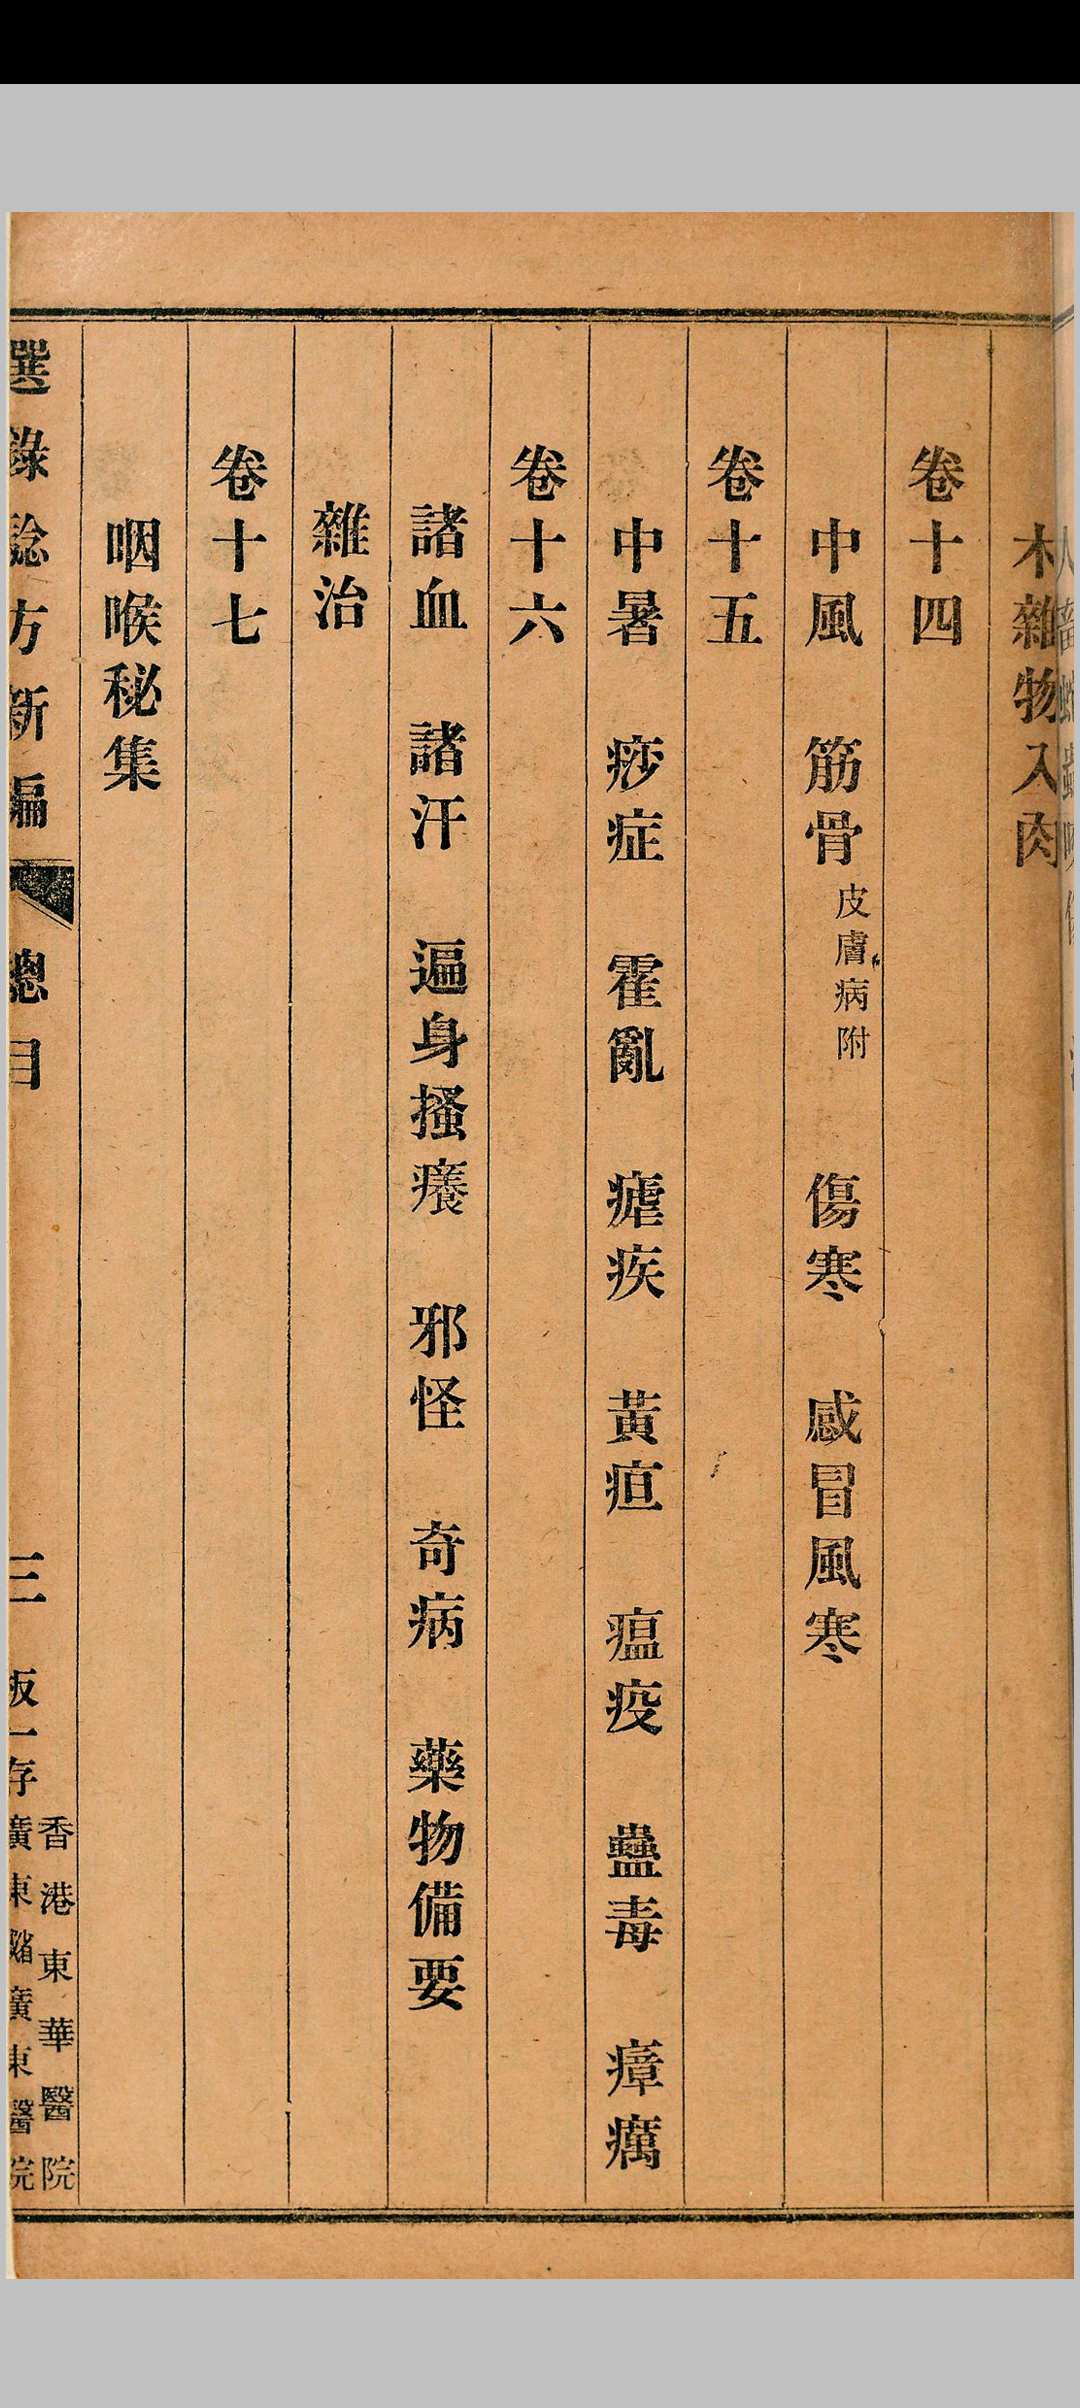 木雜物入肉
卷十四
中風　筋骨皮膚病附　傷寒　感冒風寒
卷十五
中暑　痧症　霍亂　瘧疾　黃疸　瘟疫　蠱毒　瘴癘
卷十六
諸血　諸汗　遍身搔癢　邪怪　奇病　藥物備要
雜治
卷十七
咽喉秘集
選錄驗方新編　總目　三　板存
香港東華醫院
廣東省廣東醫院